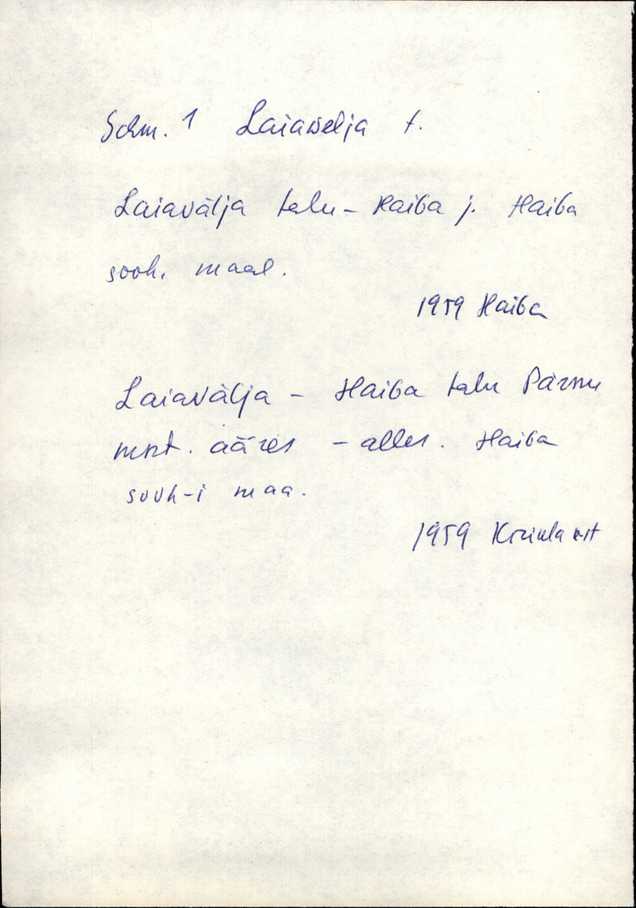 Schm. 1 Laiawelja t.
Laiavälja talu - Haiba j. Haiba
sovh. maal.
1959 Haiba
Laiavälja - Haiba talu Pärnu
mnt. ääres - alles. Haiba
sovh-i maa.
1959